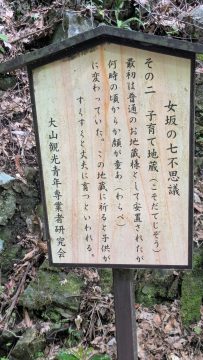 女坂の七不思議
その二　子育て地蔵（こそだてじぞう）
最初は普通のお地蔵様として安置されたが
何時の頃からか顔が童あ（わらべ）
に変わっていた。この地蔵に祈ると子供が
すくすくと丈夫に育つといわれる。
大山観光青年専業者研究会